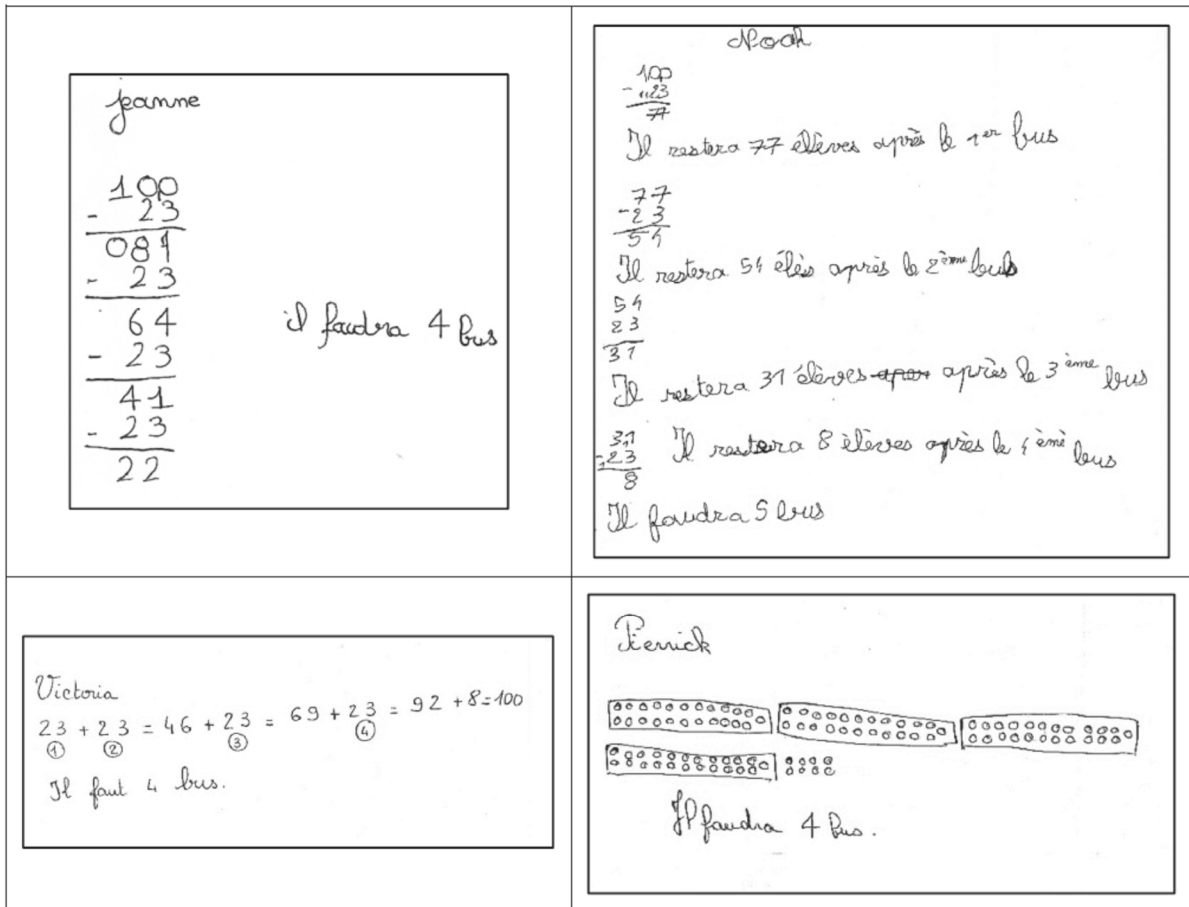 jeanne
100
- 23
081
- 23
64
- 23
41
- 23
22
il faudra 4 bus
Noah
100
- 123
77
Il restera 77 élèves après le 1er bus
77
- 23
54
Il restera 54 élès après le 2ème bus
54
23
31
Il restera 31 élèves après le 3ème bus
31
- 123
8
Il restera 8 élèves après le 4ème bus
Il faudra 5 bus
Victoria
23 + 23 = 46 + 23 = 69 + 23 = 92 + 8 = 100
① ② ③ ④
Il faut 4 bus.
Pierrick
Il faudra 4 bus.